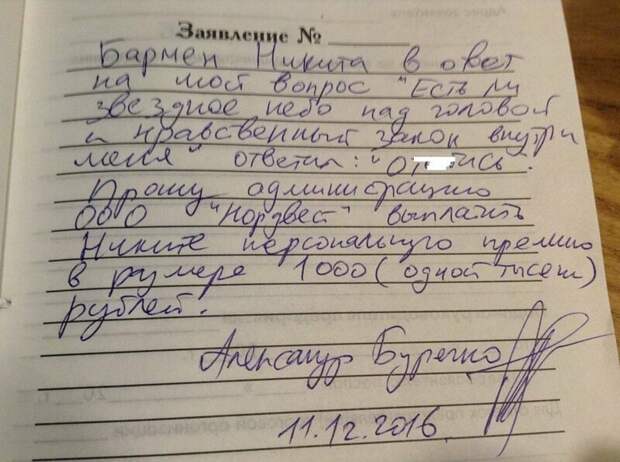 Заявление № ______
Бармен Никита в ответ
на мой вопрос "Есть ли
звездное небо над головой
и нравственный закон внутри
меня" ответил: "От ись".
Прошу администрацию
ООО "Нордвест" выплатить
Никите персональную премию
в размере 1000 (одной тысячи)
рублей.
Александр Буренко
11.12.2016